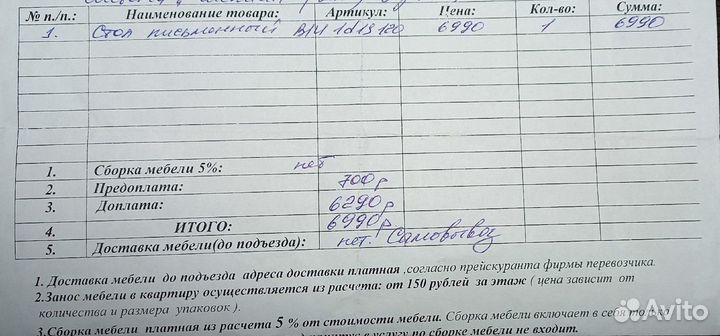 № п./п.: Наименование товара: Артикул: Цена: Кол-во: Сумма:
1. Стол письменный 6990 1 6990
1. Сборка мебели 5%: нет
2. Предоплата: 700р
3. Доплата: 6290р
4. ИТОГО: 6990р
5. Доставка мебели(до подъезда): нет. Самовывоз
1. Доставка мебели до подъезда адреса доставки платная ,согласно прейскуранта фирмы перевозчика.
2.Занос мебели в квартиру осуществляется из расчета: от 150 рублей за этаж ( цена зависит от
количества и размера упаковок ).
3.Сборка мебели платная из расчета 5 % от стоимости мебели. Сборка мебели включает в себя только
услугу по сборке мебели не входит.
Avito